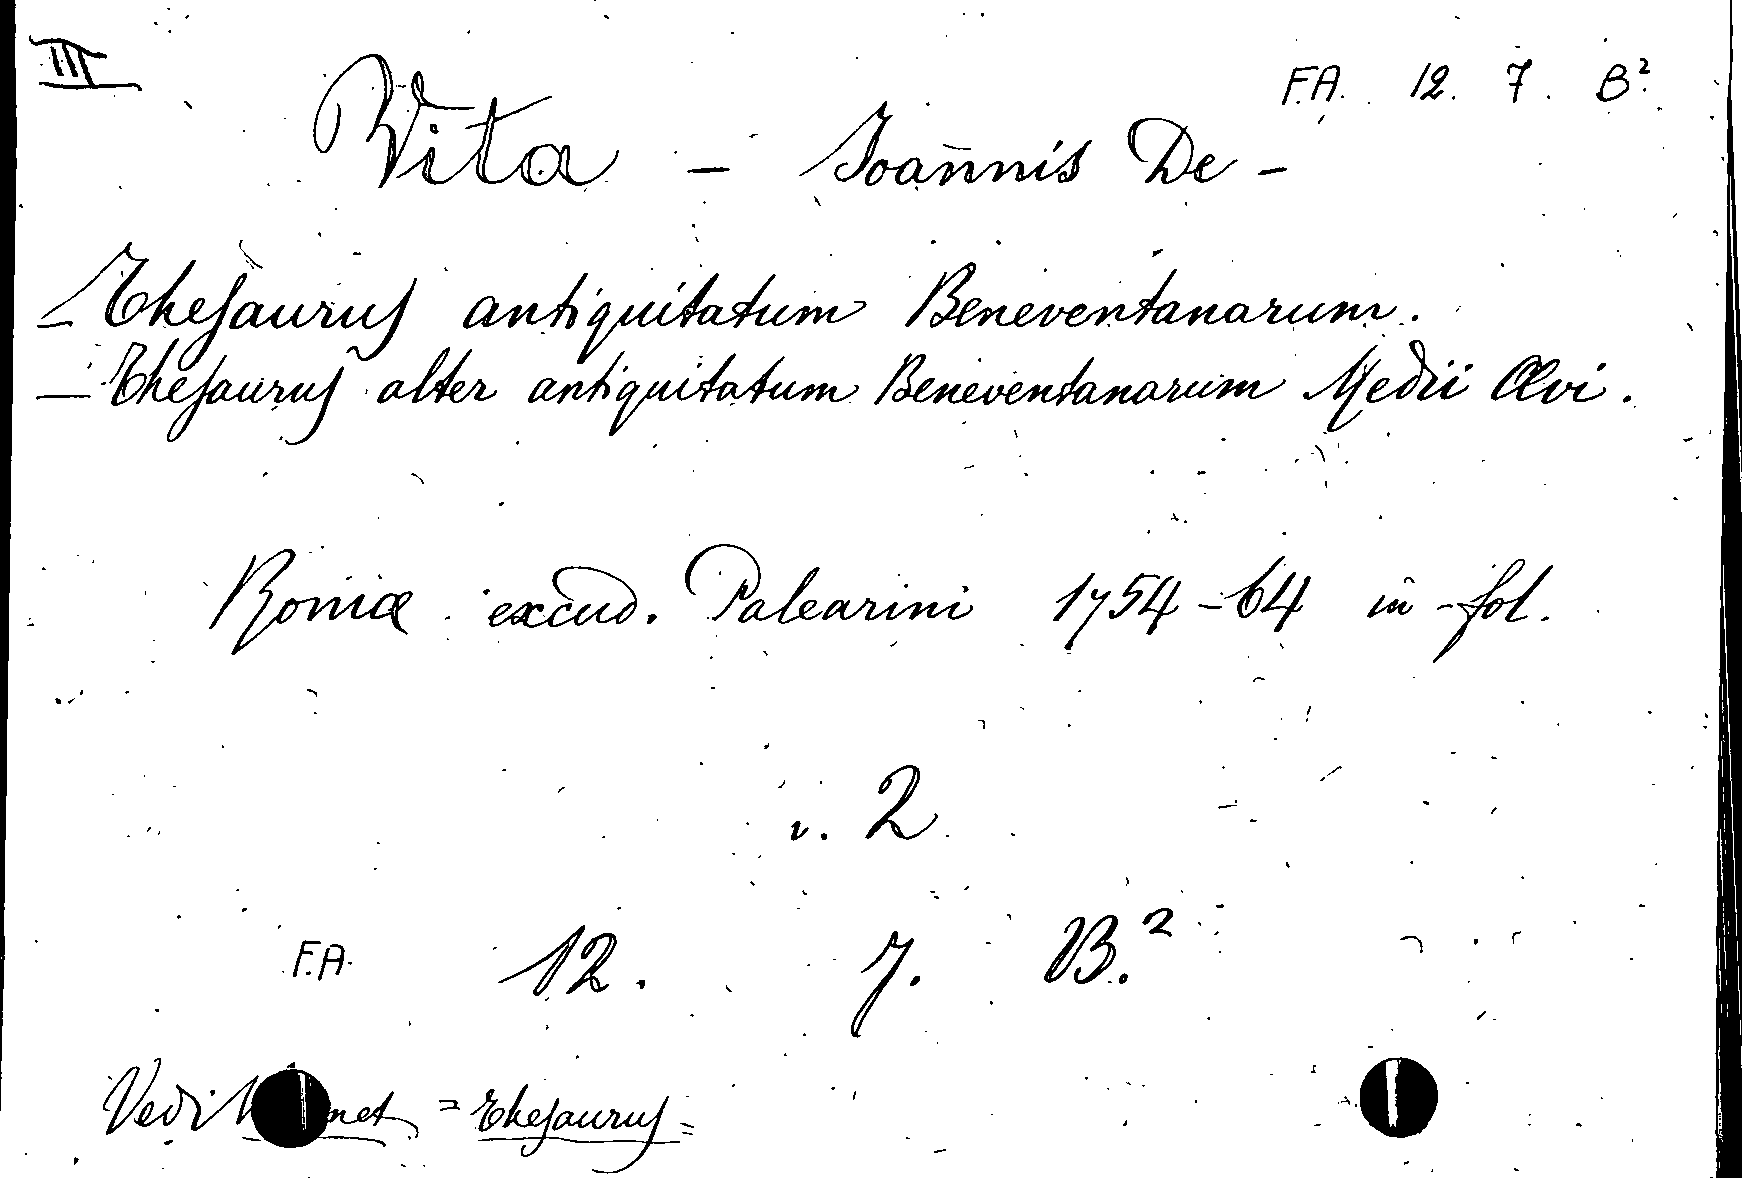 III
F.A. 12. 7. B².
Vita - Joannis De -
- Thesaurus antiquitatum Beneventanarum.
- Thesaurus alter antiquitatum Beneventanarum Medii Ævi.
Romæ excud. Palearini 1754-64 in-fol.
v. 2
F.A. 12. 7. B.²
Vedi = Thesaurus =